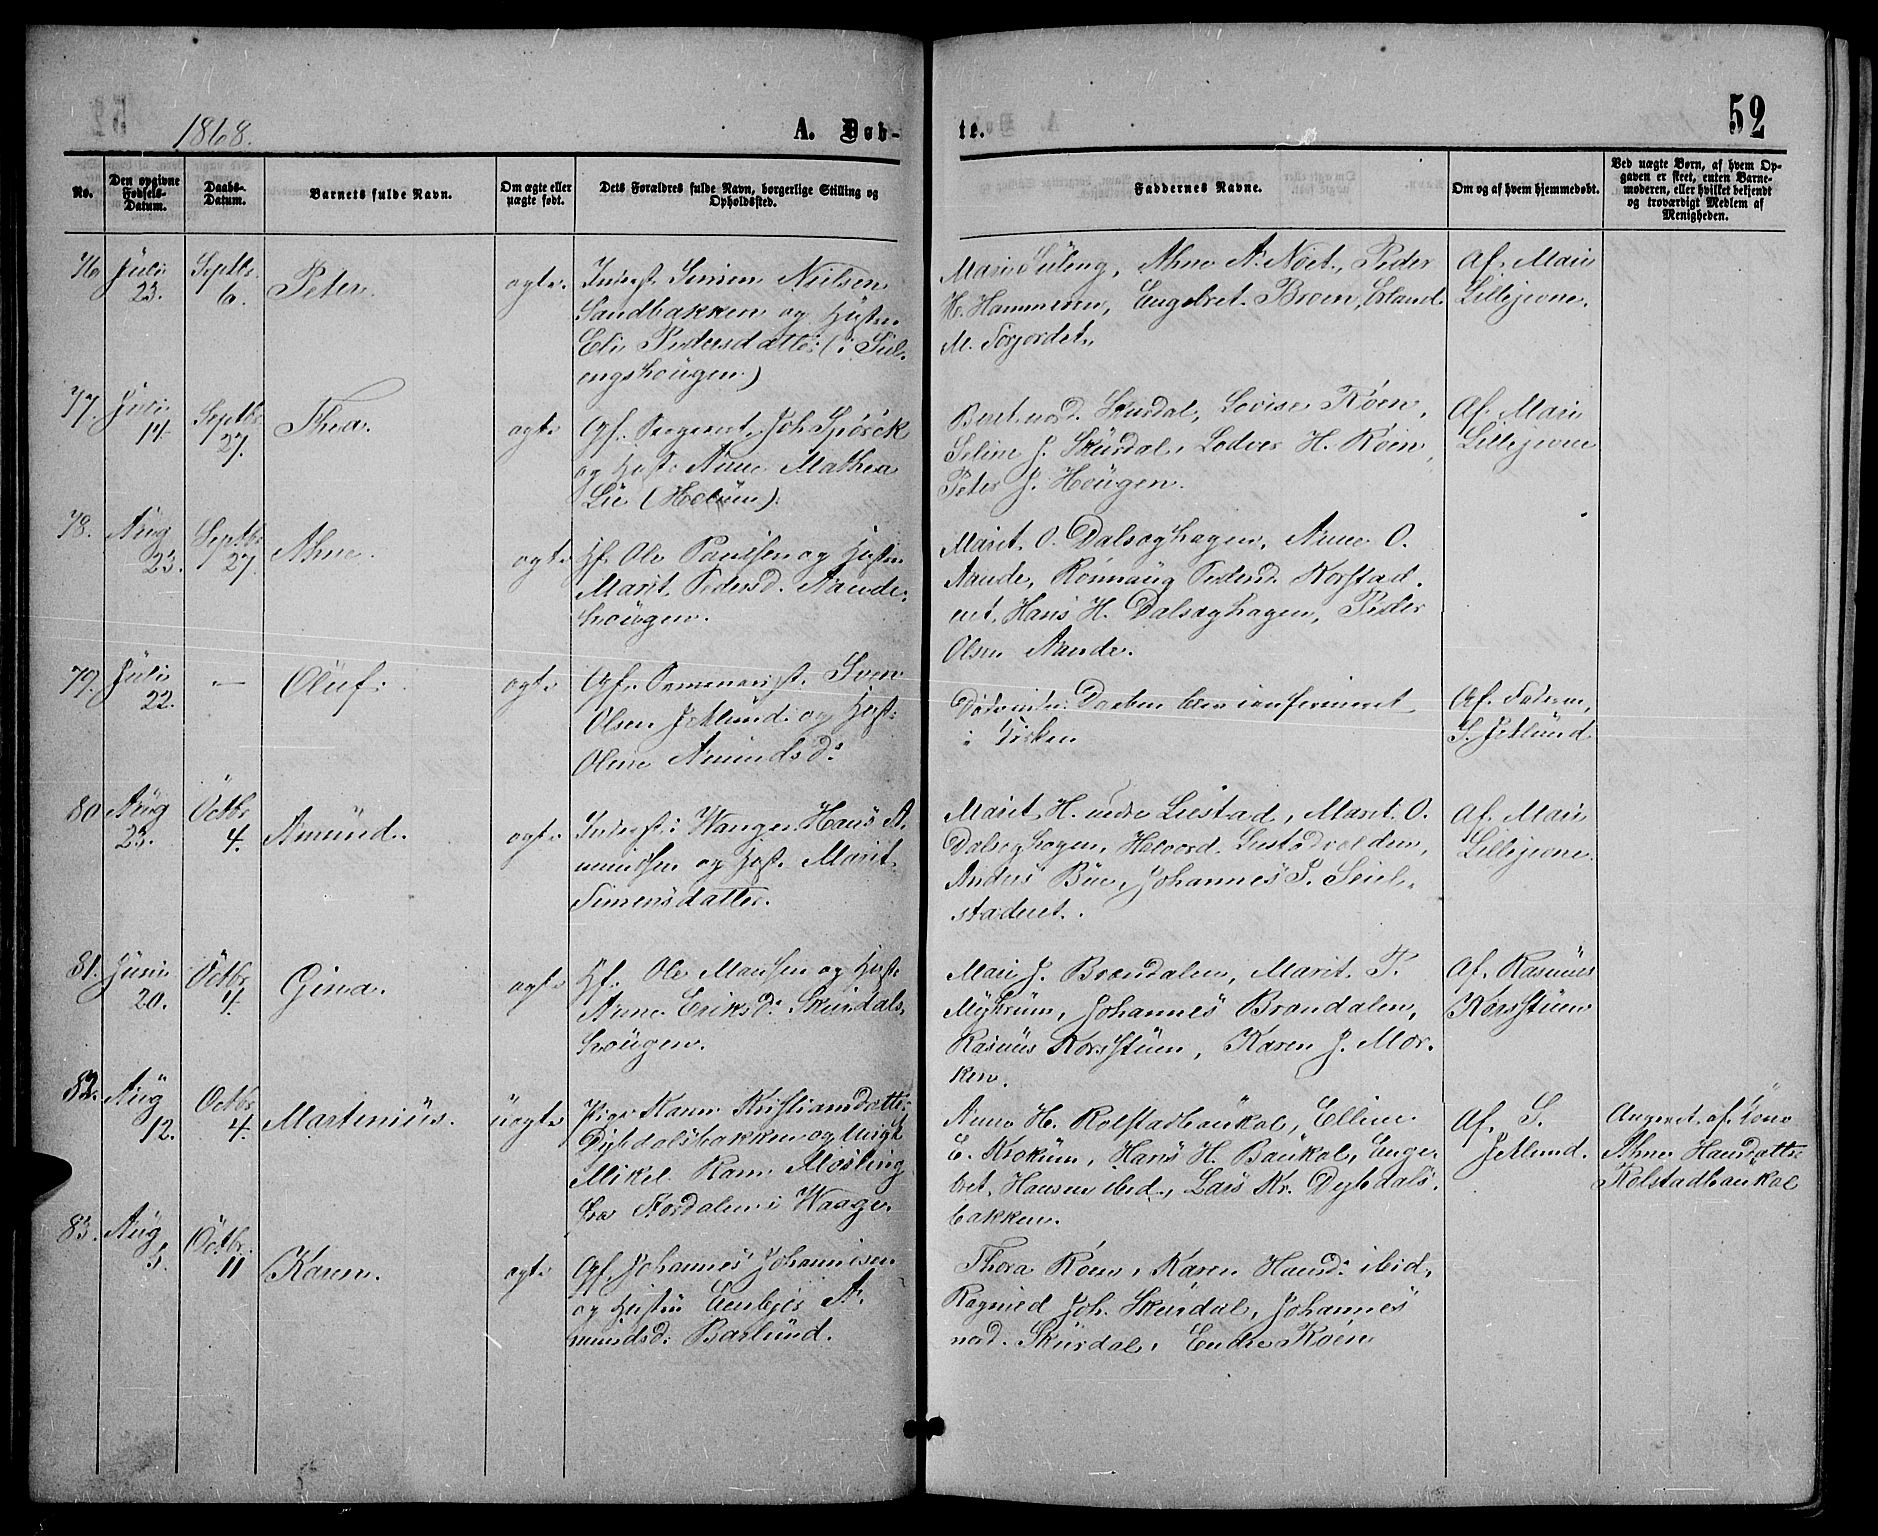 1868.
A. Døb-
te.
52
No.
Den opgivne
Fødsels-
Datum.
Daabs-
Datum.
Barnets fulde Navn.
Om ægte eller
uægte født.
Dets Forældres fulde Navn, borgerlige Stilling og
Opholdssted.
Faddernes Navne.
Om og af hvem hjemmedøbt.
Ved uægte Børn, af hvem Op-
gaven er skeet, enten Barne-
moderen, eller hvilket bekjendt
og troværdigt Medlem af
Menigheden.
76
Juli
23.
Septbr.
6.
Peter.
ægte.
Inderst Simen Nielsen
Sandbakken og Hustru
Eli Pedersdatter (i Sul-
engshougen)
Mari Suleng, Ahne A. Noet, Peder
H. Hammeren, Engebret Broen, Erland
M. Sorjordet.
Af Mari
Lillejevne.
77.
Juli
14
Septbr
27.
Thea.
ægte
Gf. Sergeant Joh. Spörck
og Hust. Anne Mathea
Lie (Holum).
Berit nod. Skurdal, Lovise Röen,
Seline J. Skurdal, Lodver H. Röen,
Peter J. Hougen.
Af Mari
Lillejevne
78.
Aug
23.
Septbr
27.
Ahne.
ægte
Hf. Ole Paulsen og Hustru
Marit Pedersd. Aande-
hougen.
Marit O. Dalseghagen, Anne O.
Aande, Rönnaug Pedersd. Korstad-
eiet, Hans H. Dalseghagen, Peder
Olsen Aande.
79.
Juli
22.
—
Oluf.
ægte
Gf. Seminarist Sven
Olsen Jetlund og Hust.
Olene Amundsd.
Daaben blev confirmeret
i Kirken
Af Faderen,
S. Jetlund
80
Aug
23.
Octbr
4.
Amund.
ægte
Inderst i Wange Hans A-
mundsen og Hust. Marit
Simensdatter.
Marit H. nedre Liestad, Marit O.
Dalseghagen, Halvord Liestadvolden,
Anders Bue, Johannes S. Seiel-
staderet.
Af Mari
Lillejevne.
81.
Juni
20.
Octbr
4.
Gina.
ægte
Hf. Ole Monsen og Hust.
Anne Eriksd. Skurdals-
hougen.
Mari J. Brændalen, Marit T.
Myhrum, Johannes Brændalen,
Rasmus Korsstuen, Karen J. Mor-
ken.
Af Rasmus
Korsstuen
82.
Aug
12.
Octbr
4.
Martinius.
uægte
Pige Karen Kristiansdatter
Dybdalsbakken og Ungk
Mikel Mosling
fra Nordalen i Waage.
Anne H. Kolstadbaukal, Elline
E. Krokum, Hans H. Baukal, Enge-
bret Hansen ibid., Lars Kr. Dybdals-
bakken.
Af S.
Jetlund.
Angivet af Kone
Ahne Hansdatter
Kolstadbaukal
83.
Aug
5.
Octbr.
11
Karen.
ægte
Gf. Johannes Johannesen
og Hustru Eenbjör A-
mundsd. Baslund.
Thora Röen, Karen Hansd. ibid,
Ragnild Joh. Skurdal, Johannes
nod. Skurdal, Endre Röen